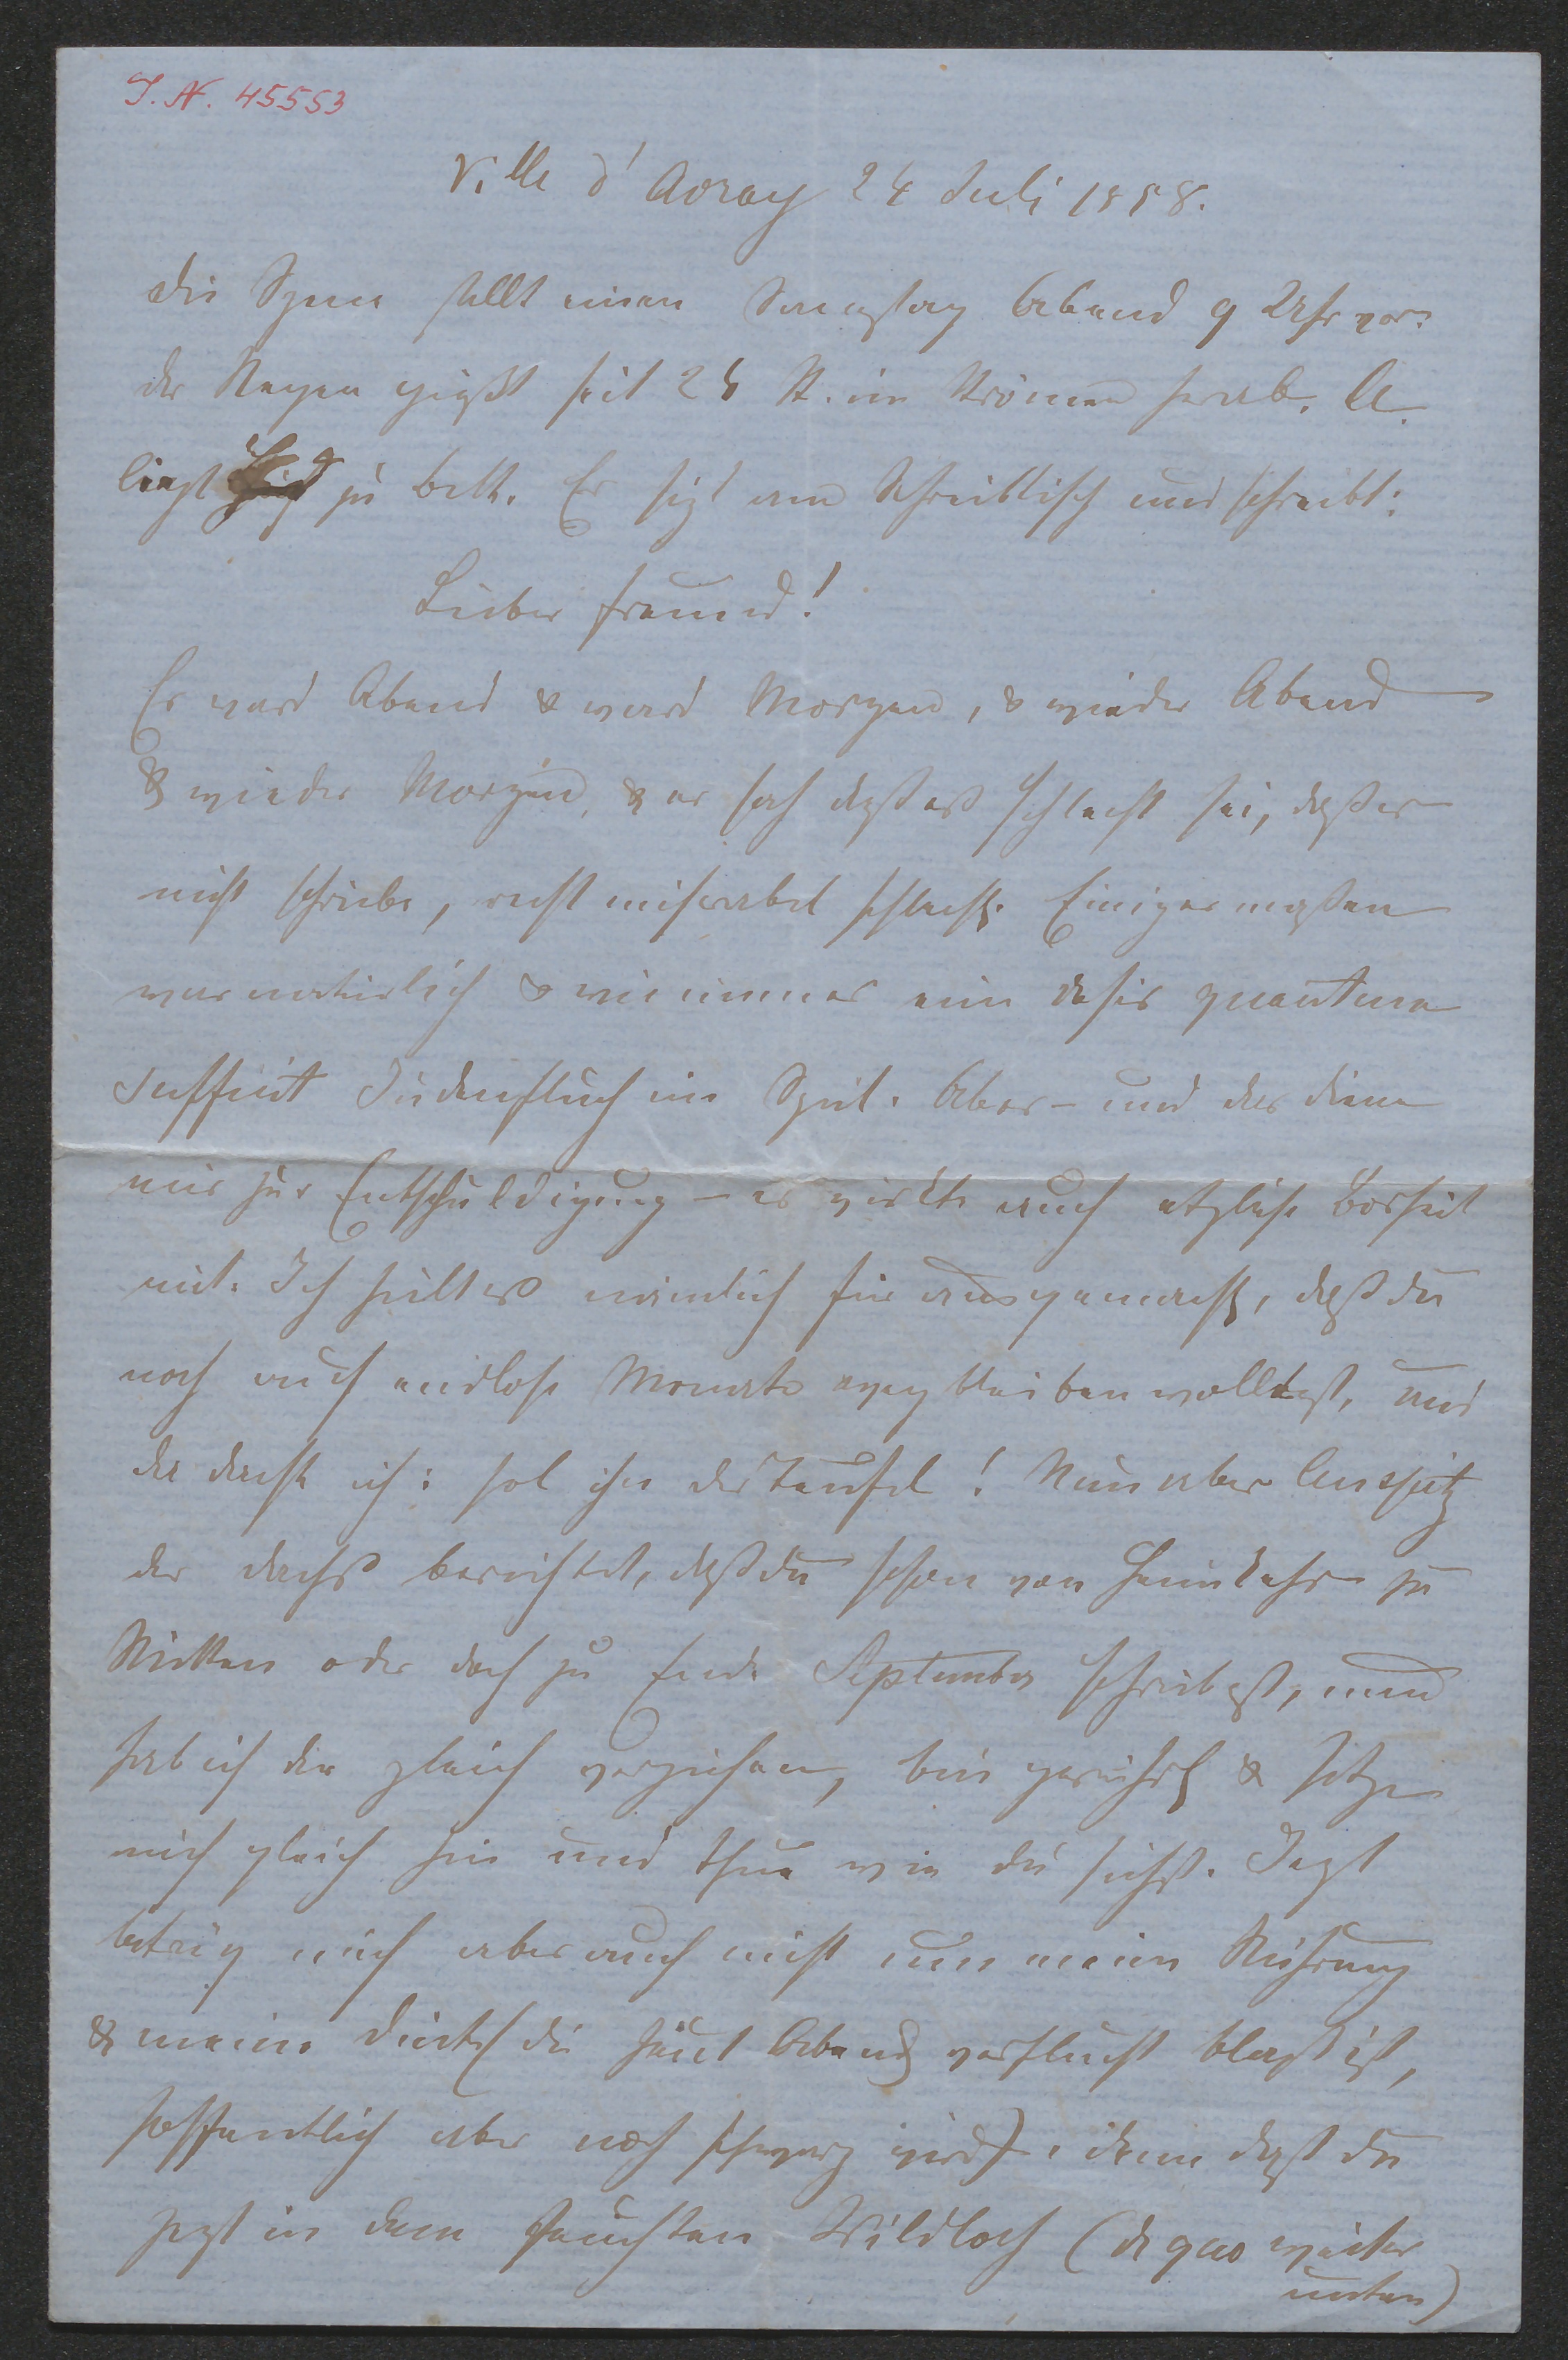 I. N. 45553
Ville d'Avray 24 Juli 1858.
Die Szene stellt einen Samstag Abend 9 Uhr vor.
der Regen gießt seit 24 St. in Strömen herab. A.
liegt zu Bett. Er sizt am Schreibtisch und schreibt:
Lieber Freund!
Es ward Abend & ward Morgen, & wieder Abend
& wieder Morgen, & er sah daß es schlecht sei, daß er
nicht schriebe, recht miserabel schlecht. Einigermaßen
war natürlich & wie immer ein dosis quantum
sufficit Judenfluch im Spiel. Aber – und das diene
mir zur Entschuldigung – es wirkte auch etzliche Bosheit
mit. Ich hielt es nämlich für ausgemacht, daß du
noch auf endlose Monate wegbleiben wolltest, und
da dacht ich: hol ihn der Teufel! Nun aber
der Dachs berichtet, daß du schon von Heimkehr zu
Mitten oder doch zu Ende September schriebest, nun
hab ich dir gleich verziehen, bin gerührt & setze
mich gleich hin und thue wie du siehst. Jezt
betrüg mich aber auch nicht um meine Rührung
& meine Dinte (die heut Abend verflucht blaß ist,
hoffentlich aber noch schwarz wird), denn daß du
jezt in dem feuchten Wildloch (de quo weiter
unten)